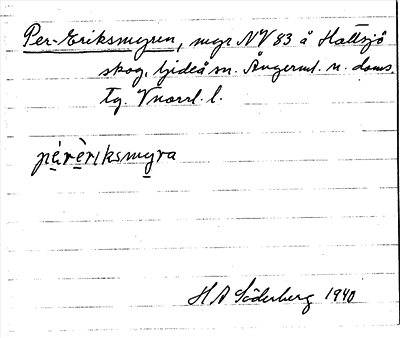 Per-Eriksmyren, myr NV 83 å Hattsjö
skog, Gideå sn. Ångerml. n. doms.
Tg. Vnorrl. l.
pèrèriksmyra
H A Söderberg 1940